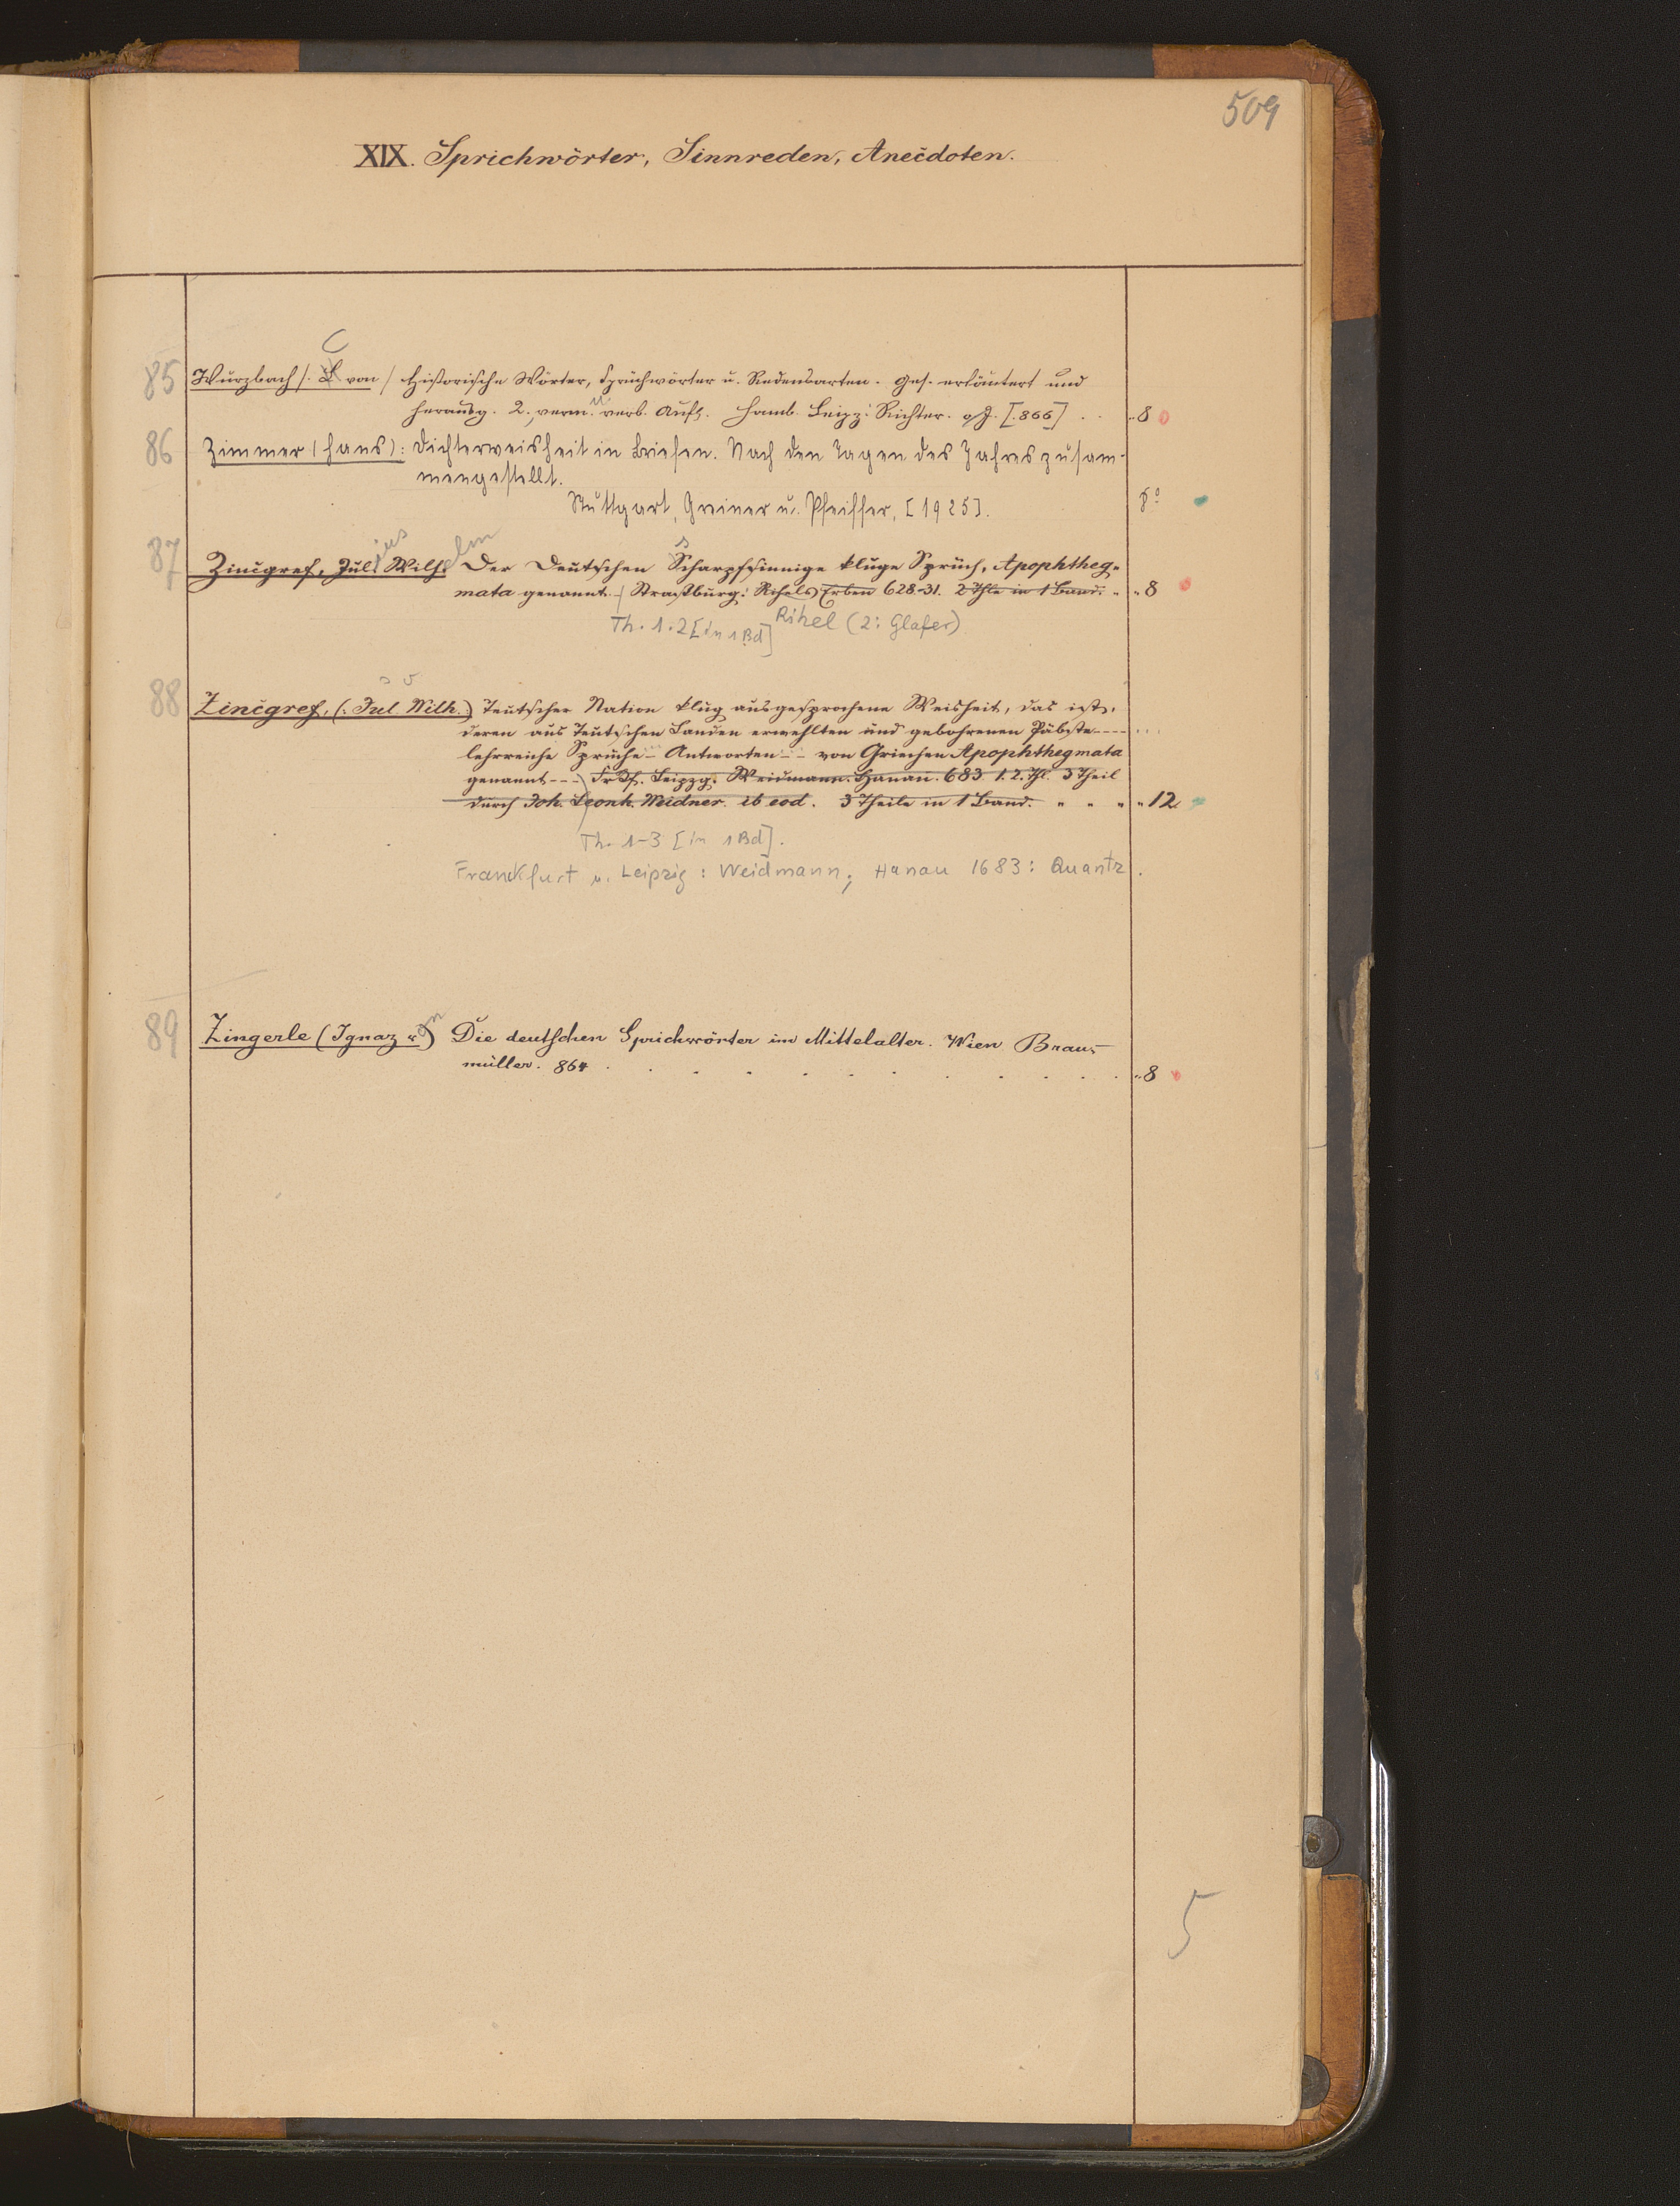 509
XIX. Sprichwörter, Sinnreden, Anecdoten.
C
85 Wurzbach /: L von / Historische Wörter, Sprüchwörter u. Redensarten. Ges. erläutert und
herausg. 2., verm. u verb. Aufl. Hamb. Leipz: Richter. o J. [866] . . "8
86 Zimmer (Hans): Dichterweisheit in Briefen. Nach den Tagen des Jahres zusam-
mengestellt.
Stuttgart, Greiner u. Pfeiffer, [1925]. 8°
ius elm s
87 Zincgref, Jul. Wilh. Der Deutschen Scharpfsinnige kluge Sprüch, Apophtheg-
mata genannt. / Straßburg: Rihels Erben 628-31. 2 Thle in 1 Band. " "8
Th. 1.2 [in 1 Bd] Rihel (2: Glaser)
88 Zincgref, (: Jul. Wilh.:) Teutscher Nation klug ausgesprochene Weisheit, das ist,
deren aus Teutschen Landen erwehlten und gebohrenen Päbste ---- ...
lehrreiche Sprüche - Antworten -- von Griechen Apophthegmata
genannt --- Frkf. Leipzg. Weidmann. Hanau. 683. 1. 2. Thl. 3 Theil
durch Joh. Leonh. Weidner. ib eod. 3 Theile in 1 Band. " " " "12
Th. 1-3 [in 1 Bd].
Frankfurt u. Leipzig: Weidmann; Hanau 1683: Quantz.
89 Zingerle (Ignaz v.) Die deutschen Sprichwörter im Mittelalter. Wien Brau-
müller. 864 . . . . . . . . . . "8
5